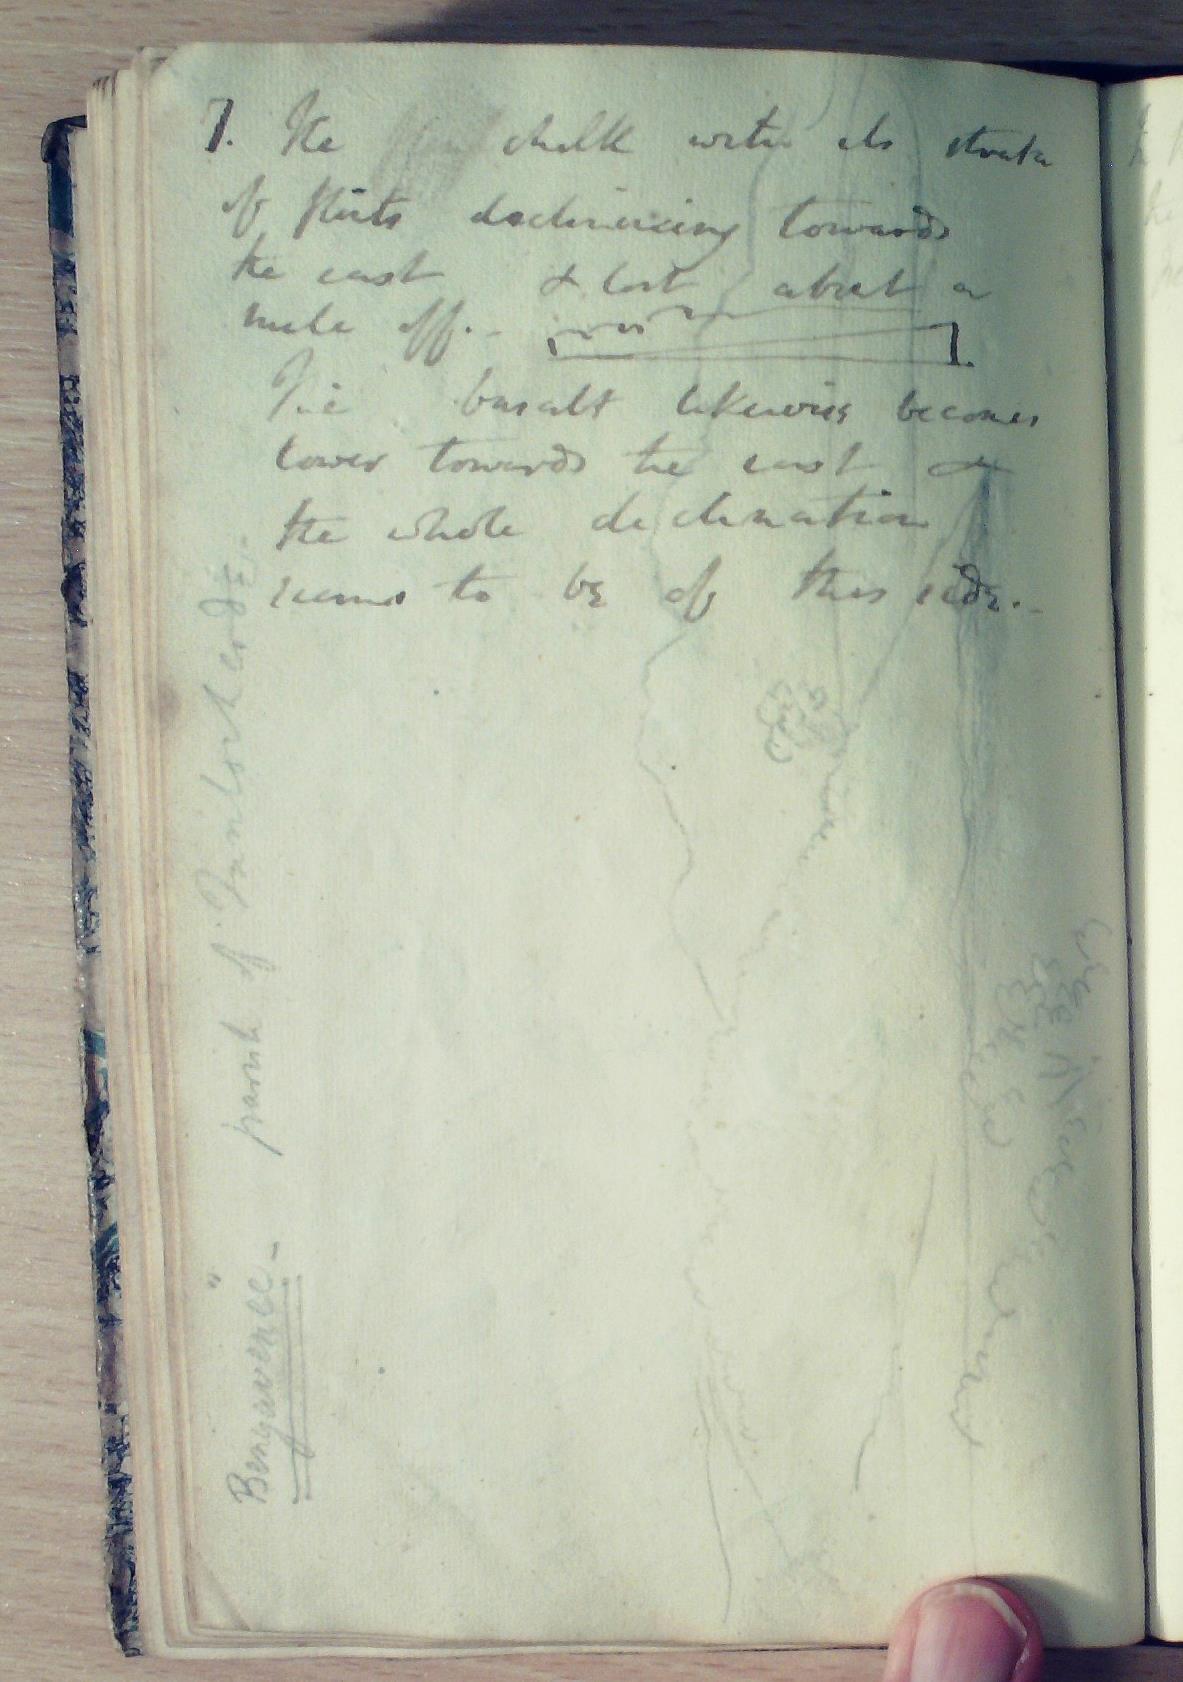 7. The chalk with its strata
of flints declineing towards
the east & lost about a
mile off.-
The basalt likewise becomes
lower towards the east &
the whole declination
seems to be of this side.-
Bengavenee - parish of